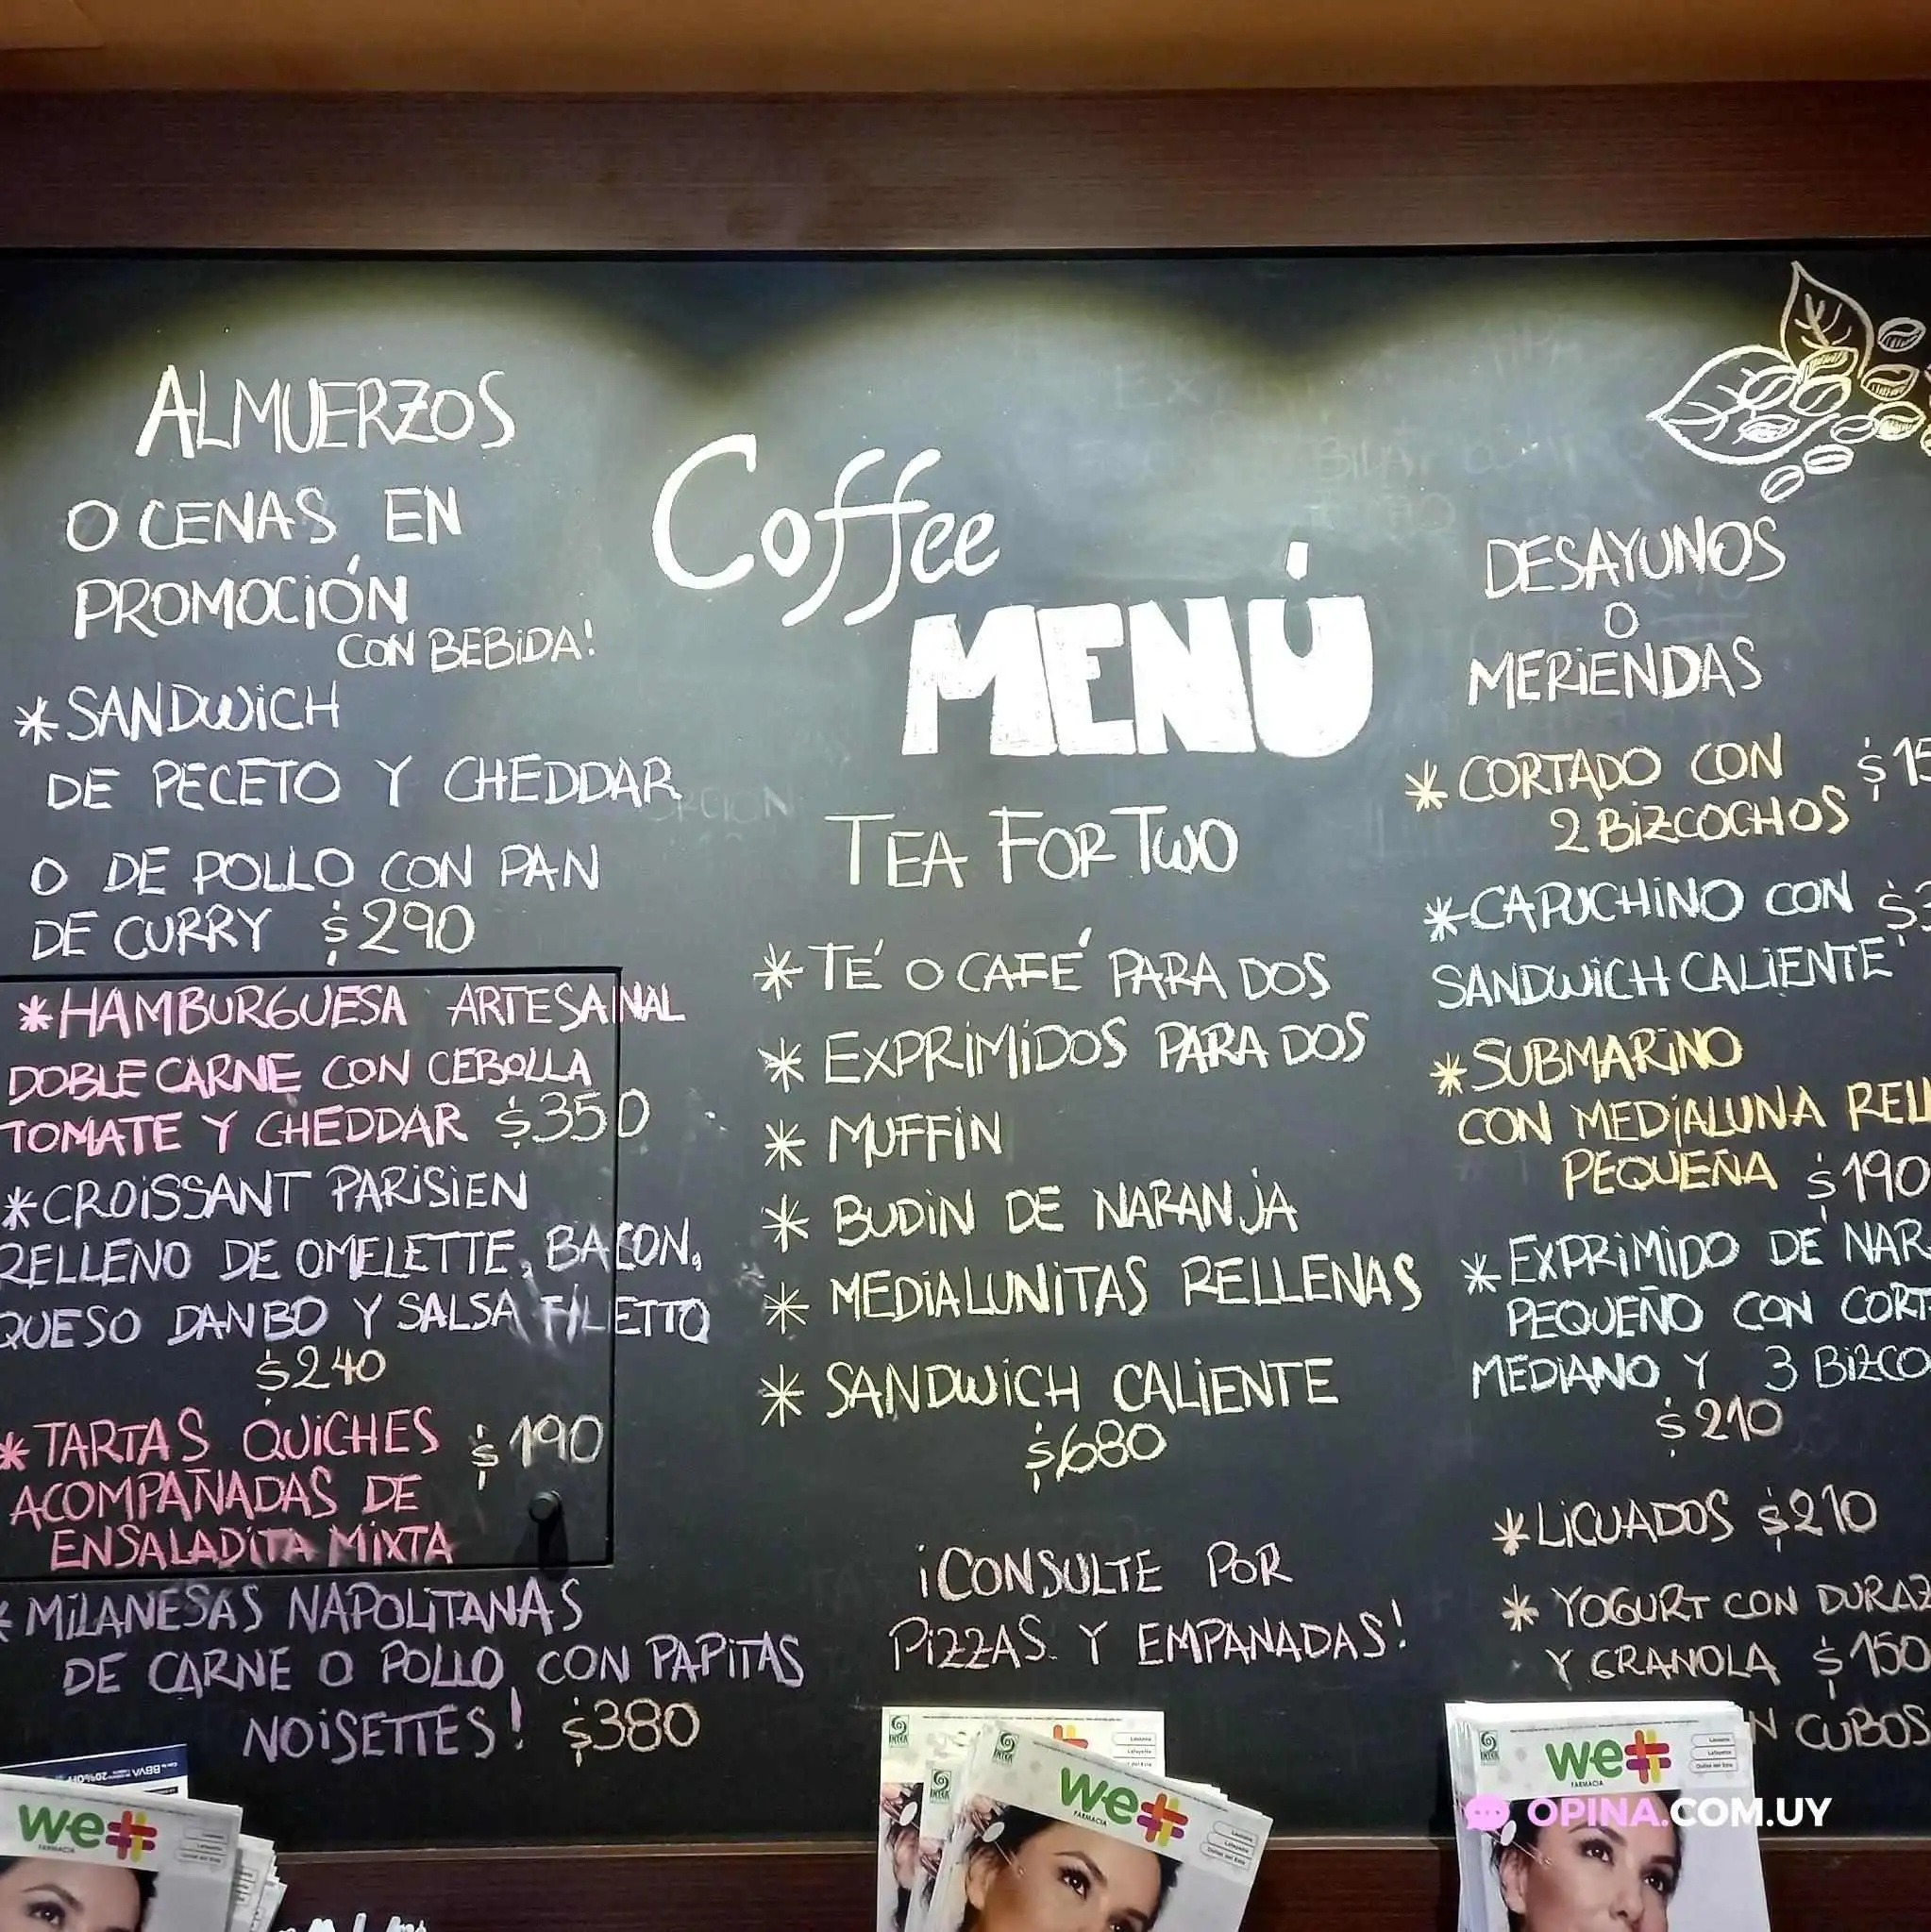 ALMUERZOS
O CENAS EN
PROMOCIÓN
CON BEBIDA!
* SANDWICH
DE PECETO Y CHEDDAR
O DE POLLO CON PAN
DE CURRY $290
* HAMBURGUESA ARTESANAL
DOBLE CARNE CON CEBOLLA
TOMATE Y CHEDDAR $350
* CROISSANT PARISIEN
RELLENO DE OMELETTE, BACON,
QUESO DANBO Y SALSA FILETTO
$240
* TARTAS QUICHES $190
ACOMPAÑADAS DE
ENSALADITA MIXTA
* MILANESAS NAPOLITANAS
DE CARNE O POLLO CON PAPITAS
NOISETTES! $380
Coffee
MENÚ
TEA FOR TWO
* TÉ O CAFÉ PARA DOS
* EXPRIMIDOS PARA DOS
* MUFFIN
* BUDIN DE NARANJA
* MEDIALUNITAS RELLENAS
* SANDWICH CALIENTE
$680
¡CONSULTE POR
PIZZAS Y EMPANADAS!
DESAYUNOS
O
MERIENDAS
* CORTADO CON $15
2 BIZCOCHOS
* CAPUCHINO CON $3
SANDWICH CALIENTE
* SUBMARINO
CON MEDIALUNA RELL
PEQUEÑA $190
* EXPRIMIDO DE NAR
PEQUEÑO CON CORT
MEDIANO Y 3 BIZCO
$210
* LICUADOS $210
* YOGURT CON DURAZ
Y GRANOLA $150
N CUBOS
BBVA
we
FARMACIA
we
FARMACIA
we
FARMACIA
OPINA.COM.UY